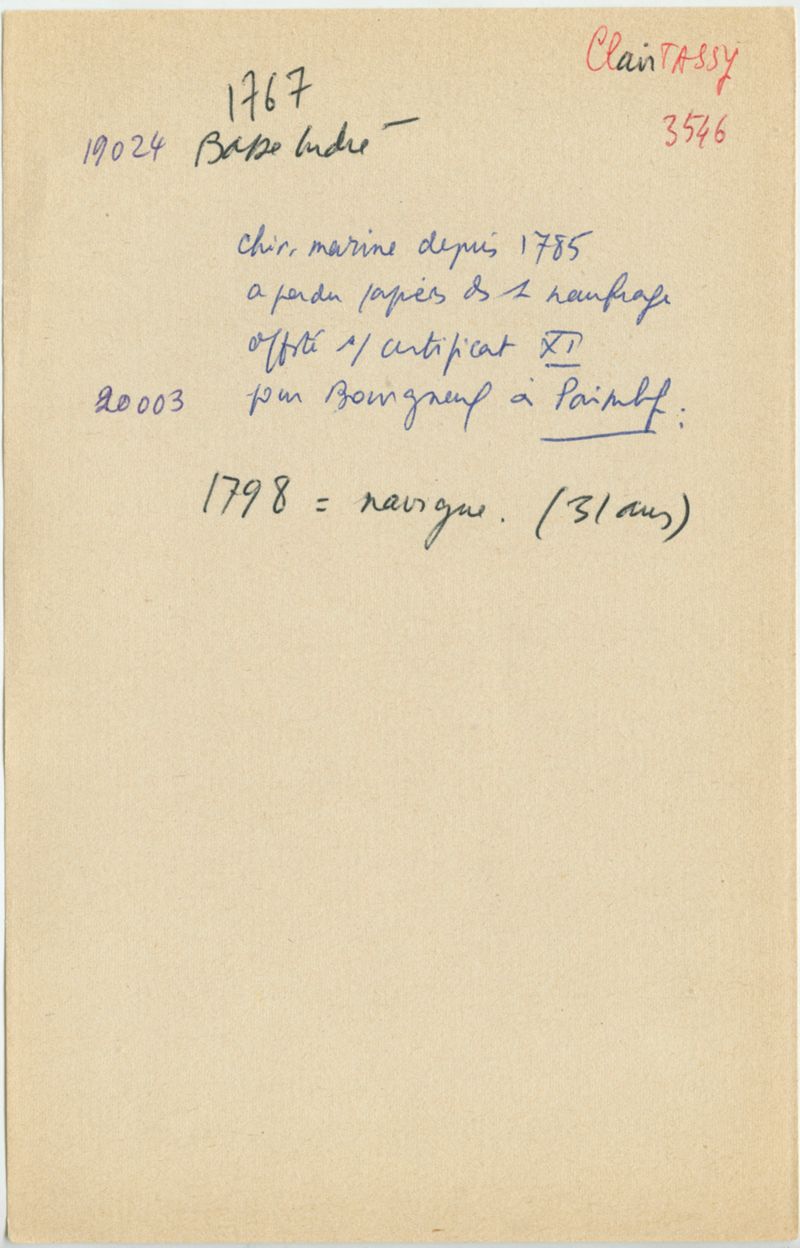 ClairTASSY
3546
1767
19024 Basse Indre
chir. marine depuis 1785
a perdu papiers ds 1 naufrage
offsté s/ certificat XI
20003 pour Bourgneuf à Paimbf.
1798 = navigue. (31 ans)